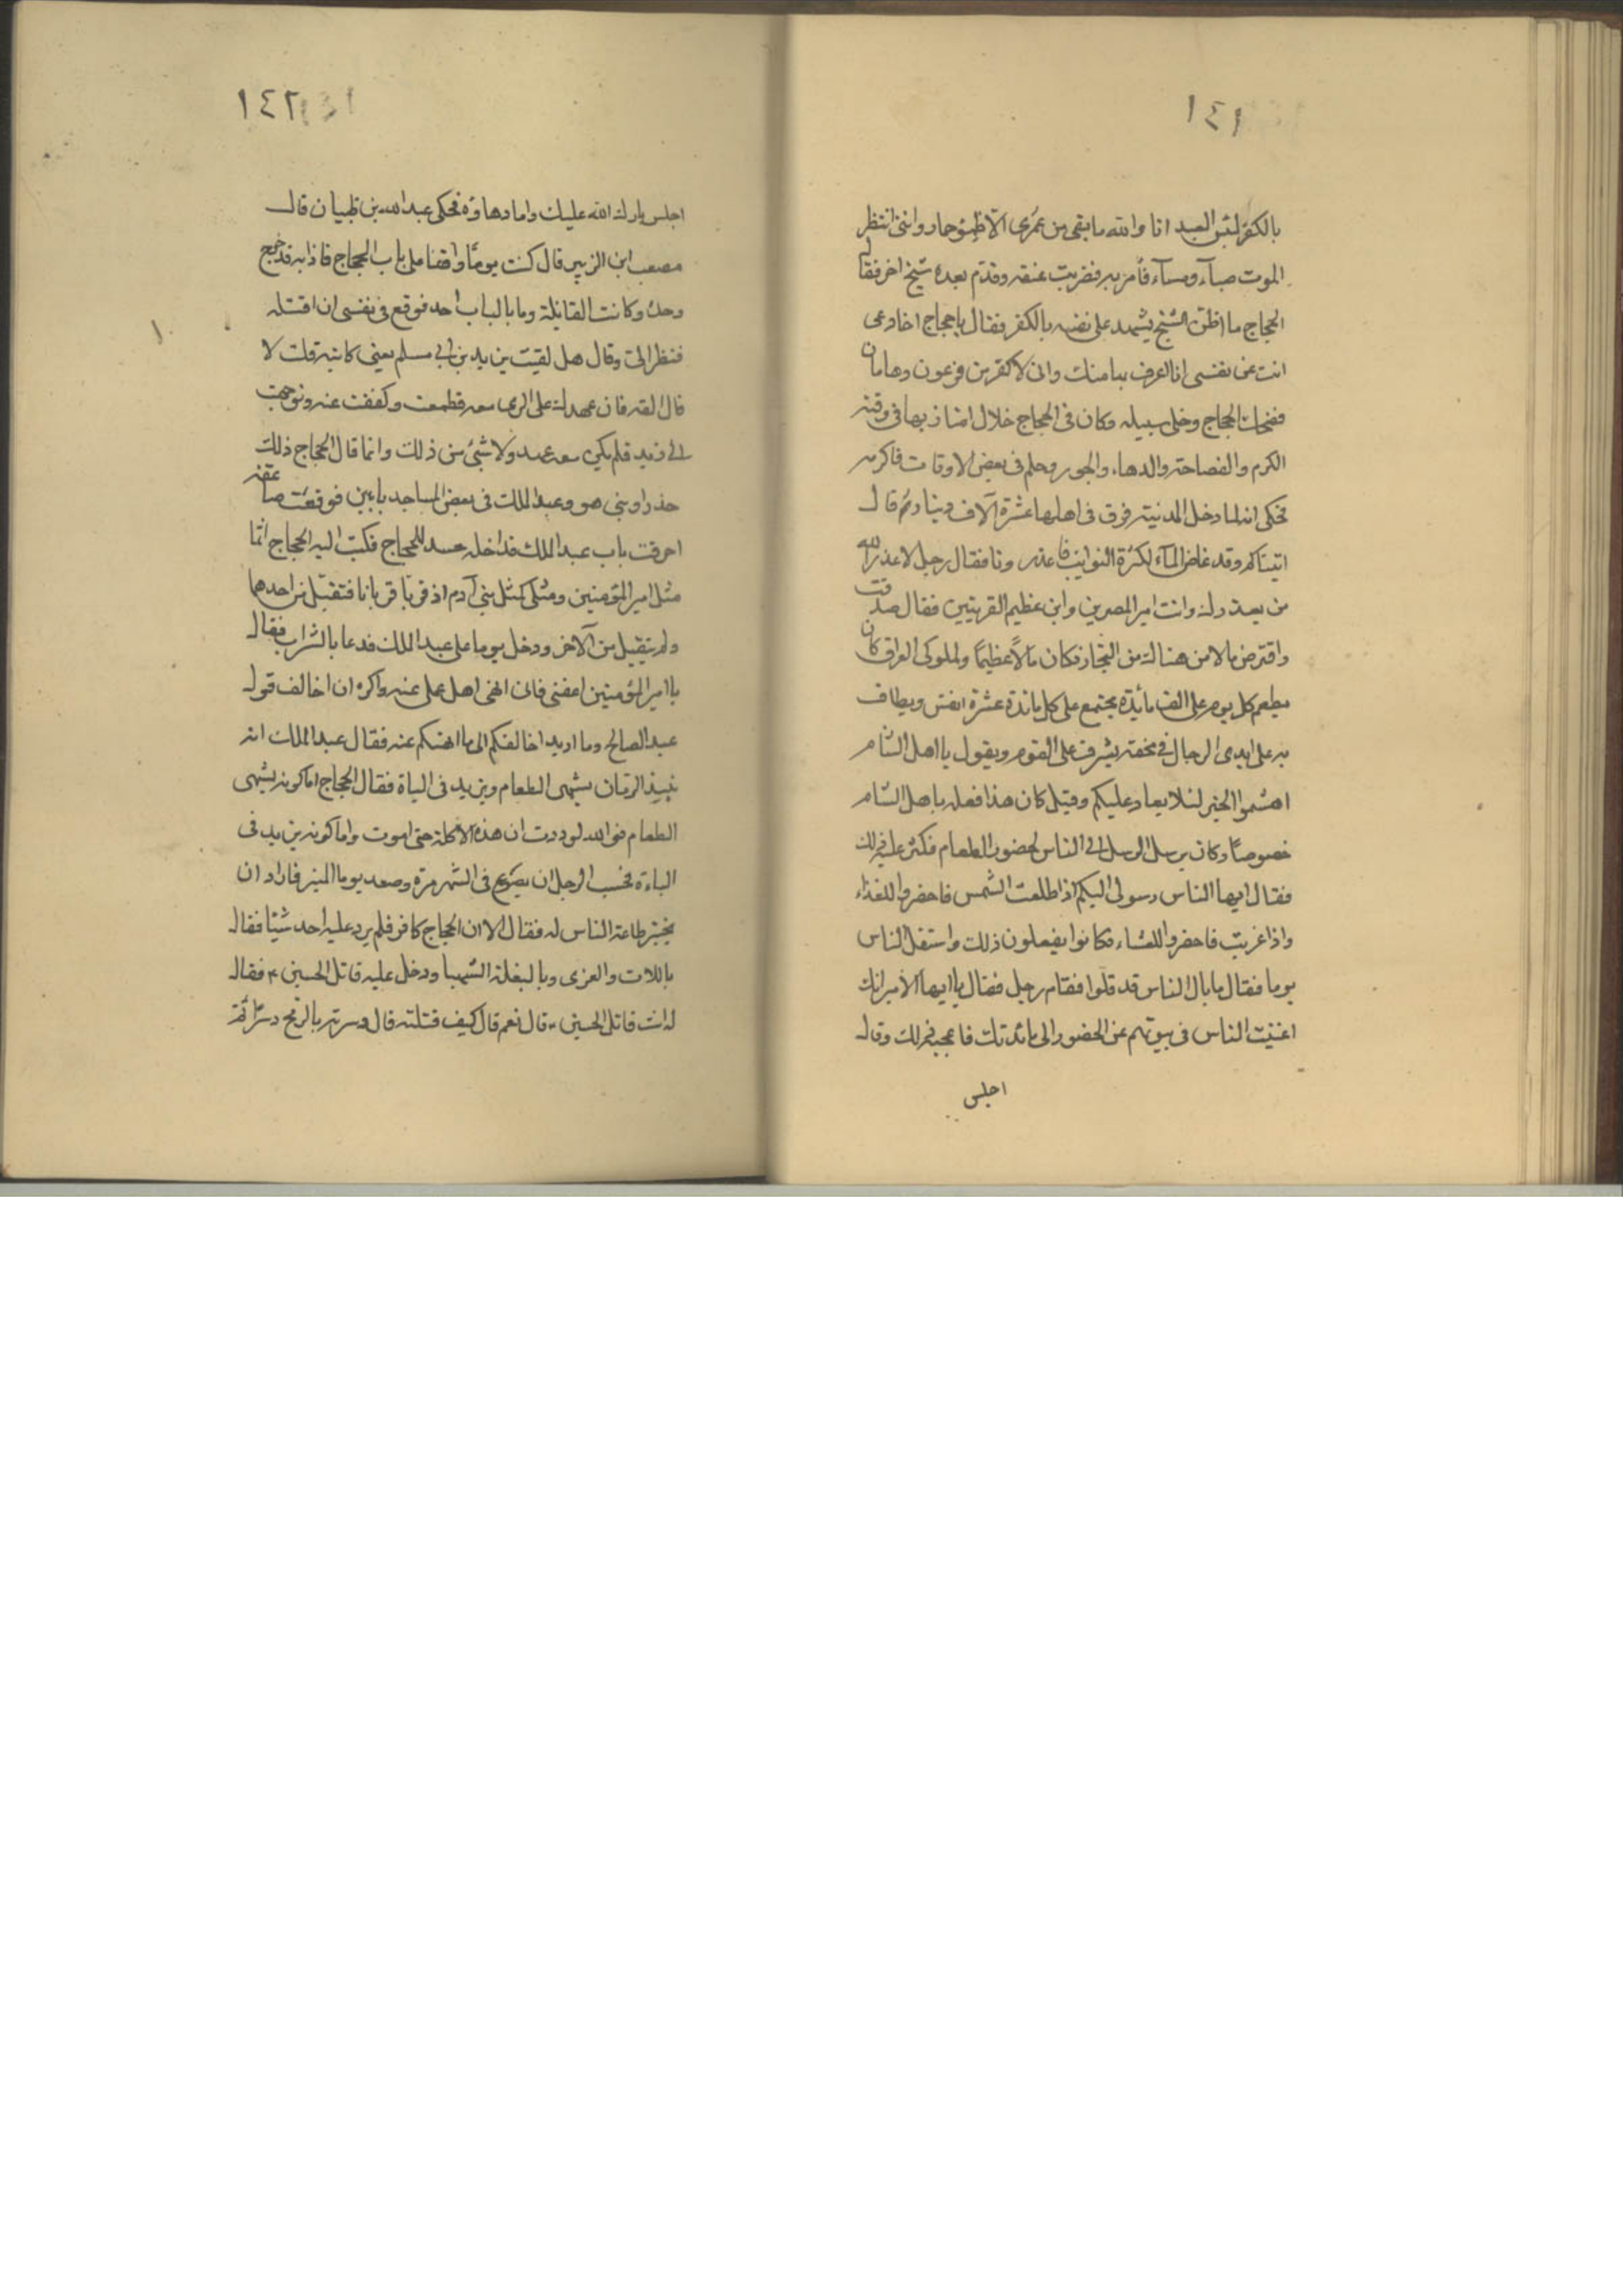 ١٤١
بالكفر لبئس العبد انا والله ما بقى من عمرى الا ظمؤ حمار واننى انتظر
الموت صبآء ومسآء فأمر به فضربت عنقه وقدم بعده شيخ اخر فقال
الحجاج ما اظن الشيخ يشهد على نفسه بالكفر فقال يا حجاج اخادعى
انت عن نفسى انا اعرف بها منك وانى لاكفر من فرعون وهامان
فضحك الحجاج وخلى سبيله وكان فى الحجاج خلال امتاز بها فى وقته
الكرم والفصاحة والدهاء والجور وحلم فى بعض الاوقات فاكرمه
فحكى انه لما دخل المدنية فرق فى اهلها عشرة آلاف دينار ثم قال
اتيناكم وقد غاض المآء لكثرة النوايب فاعذرونا فقال رجل لا عذر الله
من يعذرك وانت امير المصرين وابن عظيم القريتين فقال صدقت
واقترض مالا من هناك من التجار فكان مالاً عظيمًا ولما ولى العراق كان
يطعم كل يوم على الف مائدة يجتمع على كل مائدة عشرة انفس ويطاف
به على ايدى الرجال فى محفة يشرف على القوم ويقول يا اهل الشام
اهشموا الخبز لئلا يعاد عليكم وقيل كان هذا فعله باهل الشام
خصوصًا وكان يرسل الرسل الى الناس لحضور الطعام فكثر عليه ذلك
فقال ايها الناس رسولى اليكم اذا طلعت الشمس فاحضروا للغذاء
واذا غربت فاحضروا للعشاء فكانوا يفعلون ذلك واستقل الناس
يوما فقال ما بال الناس قد قلوا فقام رجل فقال يا ايها الامير انك
اغنيت الناس فى بيوتهم عن الحضور الى مائدتك فاعجبه ذلك وقال
اجلس
١٤٢
اجلس بارك الله عليك واما دهاؤه فحكى عبد الله بن ظبيان قال
مصعب ابن الزبير قال كنت يومًا واقفا على باب الحجاج فاذا به قد خرج
وحده وكانت القائلة وما بالباب احد فوقع فى نفسى ان اقتله
فنظر الى وقال هل لقيت يزيد بن ابى مسلم يعنى كاتبه قلت لا
قال القه فان عهدك على الرى معه فطمعت وكففت عنه وتوجهت
الى يزيد فلم يكن معه عهد ولا شئ من ذلك وانما قال الحجاج ذلك
حذرا وبنى هو وعبد الملك فى بعض المساجد بابين فوقعت صاعقة
احرقت باب عبد الملك فداخله حسد للحجاج فكتب اليه الحجاج انما
مثل امير المؤمنين ومثلى كمثل بنى آدم اذ قربا قربانا فتقبل من احدهما
ولم يتقبل من الآخر ودخل يوما على عبد الملك فدعا بالشراب فقال
يا امير المؤمنين اعفنى فانى انهى اهل عملى عنه واكره ان اخالف قول
عبد الصالح وما اريد اخالفكم الى ما انهنكم عنه فقال عبد الملك انه
نبيذ الرمان يشهى الطعام ويزيد فى الباة فقال الحجاج اما كونه يشهى
الطعام فوالله لوددت ان هذه الاكلة حتى اموت واما كونه يزيد فى
الباءة فحسب الرجل ان يصرع فى الشهر مرة وصعد يوما المنبر فاراد ان
يختبر طاعة الناس له فقال الا ان الحجاج كافر فلم يرد عليه احد شيئا فقال
باللات والعزى وبالبغلة الشهبا ودخل عليه قاتل الحسين ع فقال
له انت قاتل الحسين ع قال نعم قال كيف قتلته قال دسرته بالرمح دسرًا ثم